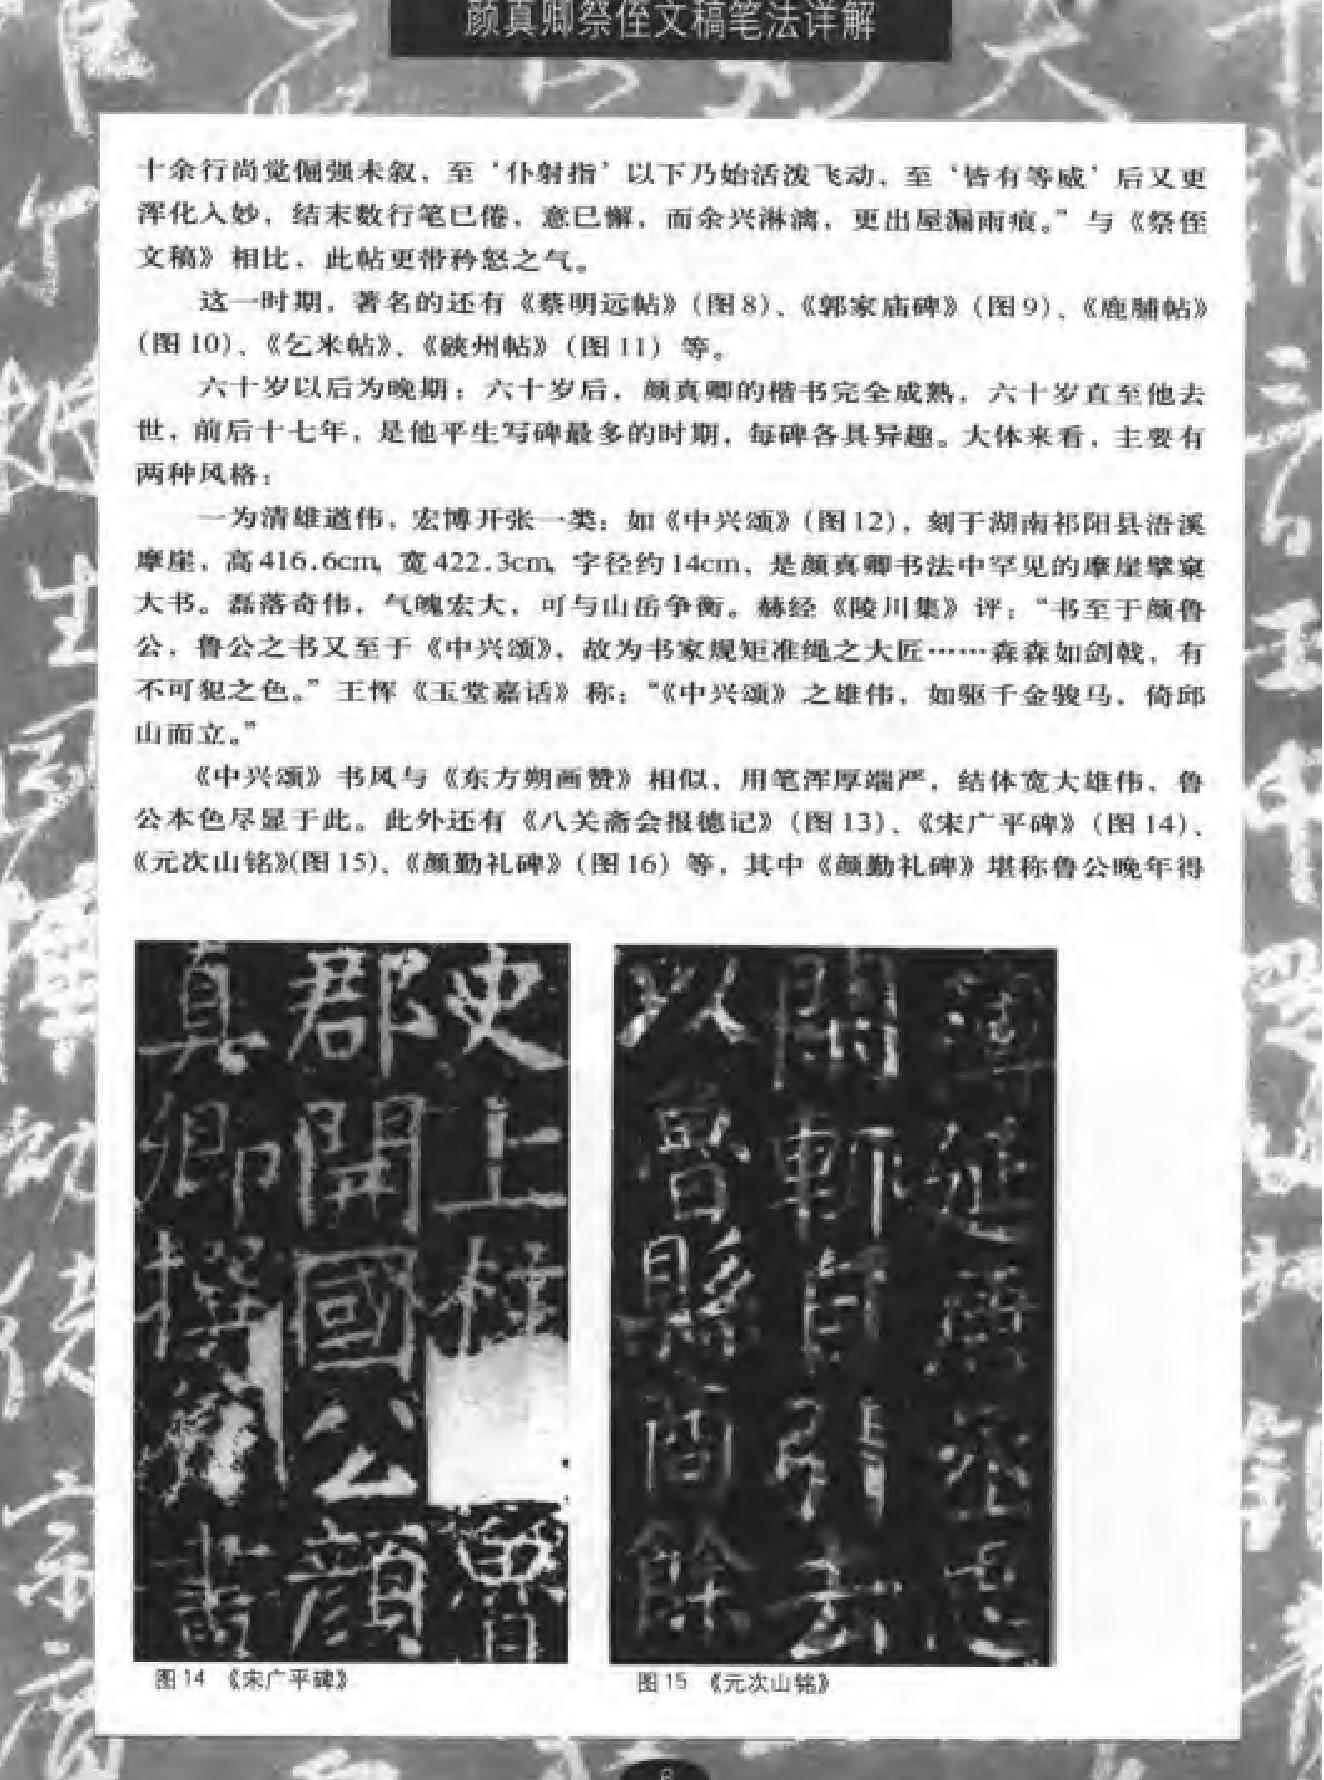 颜真卿祭侄文稿笔法详解
十余行尚觉倔强未叙，至‘仆射指’以下乃始活泼飞动，至‘皆有等威’后又更
浑化入妙，结末数行笔已倦，意已懈，而余兴淋漓，更出屋漏雨痕。”与《祭侄
文稿》相比，此帖更带矜怒之气。
这一时期，著名的还有《蔡明远帖》（图8）、《郭家庙碑》（图9）、《鹿脯帖》
（图10）、《乞米帖》、《硖州帖》（图11）等。
六十岁以后为晚期：六十岁后，颜真卿的楷书完全成熟，六十岁直至他去
世，前后十七年，是他平生写碑最多的时期，每碑各具异趣。大体来看，主要有
两种风格：
一为清雄遒伟，宏博开张一类：如《中兴颂》（图12），刻于湖南祁阳县浯溪
摩崖，高416.6cm，宽422.3cm，字径约14cm，是颜真卿书法中罕见的摩崖擘窠
大书。磊落奇伟，气魄宏大，可与山岳争衡。赫经《陵川集》评：“书至于颜鲁
公，鲁公之书又至于《中兴颂》，故为书家规矩准绳之大匠……森森如剑戟，有
不可犯之色。”王恽《玉堂嘉话》称：“《中兴颂》之雄伟，如驱千金骏马，倚邱
山而立。”
《中兴颂》书风与《东方朔画赞》相似，用笔浑厚端严，结体宽大雄伟，鲁
公本色尽显于此。此外还有《八关斋会报德记》（图13）、《宋广平碑》（图14）、
《元次山铭》（图15）、《颜勤礼碑》（图16）等，其中《颜勤礼碑》堪称鲁公晚年得
史上柱魯
郡開國公顔
真卿撰并書
以魯縣商餘
図14 《宋广平碑》
图15 《元次山铭》
8